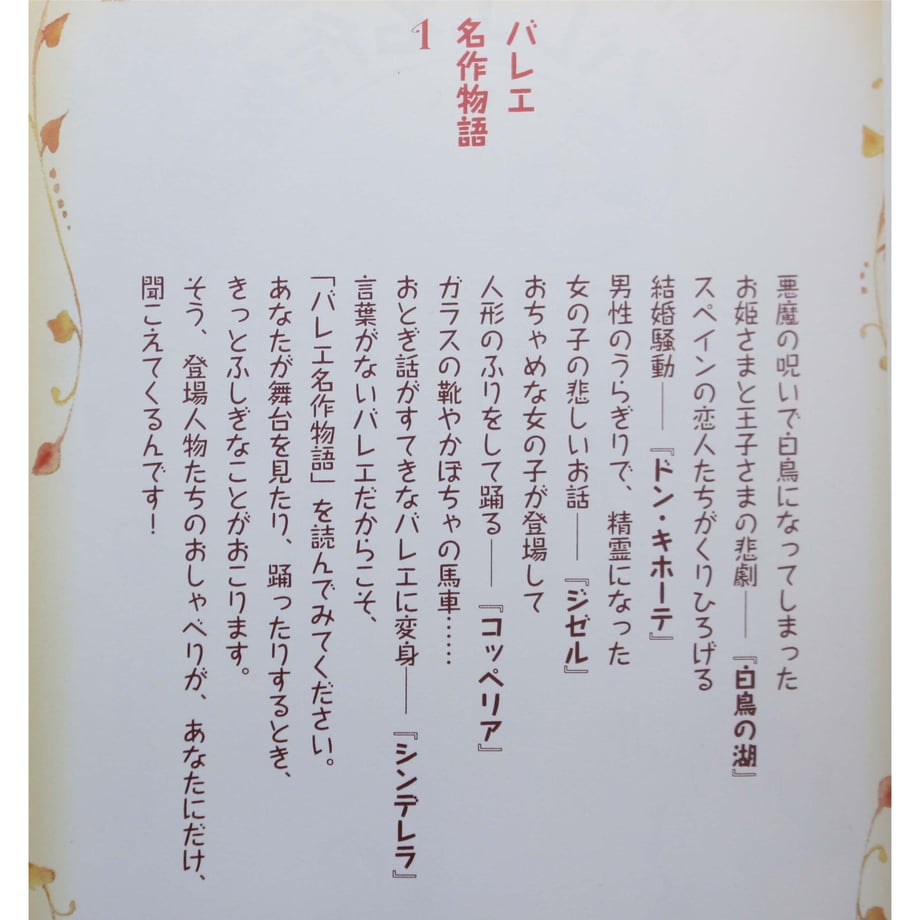 バレエ
名作物語
1
悪魔の呪いで白鳥になってしまった
お姫さまと王子さまの悲劇――『白鳥の湖』
スペインの恋人たちがくりひろげる
結婚騒動――『ドン・キホーテ』
男性のうらぎりで、精霊になった
女の子の悲しいお話――『ジゼル』
おちゃめな女の子が登場して
人形のふりをして踊る――『コッペリア』
ガラスの靴やかぼちゃの馬車……
おとぎ話がすてきなバレエに変身――『シンデレラ』
言葉がないバレエだからこそ、
「バレエ名作物語」を読んでみてください。
あなたが舞台を見たり、踊ったりするとき、
きっとふしぎなことがおこります。
そう、登場人物たちのおしゃべりが、あなたにだけ、
聞こえてくるんです！